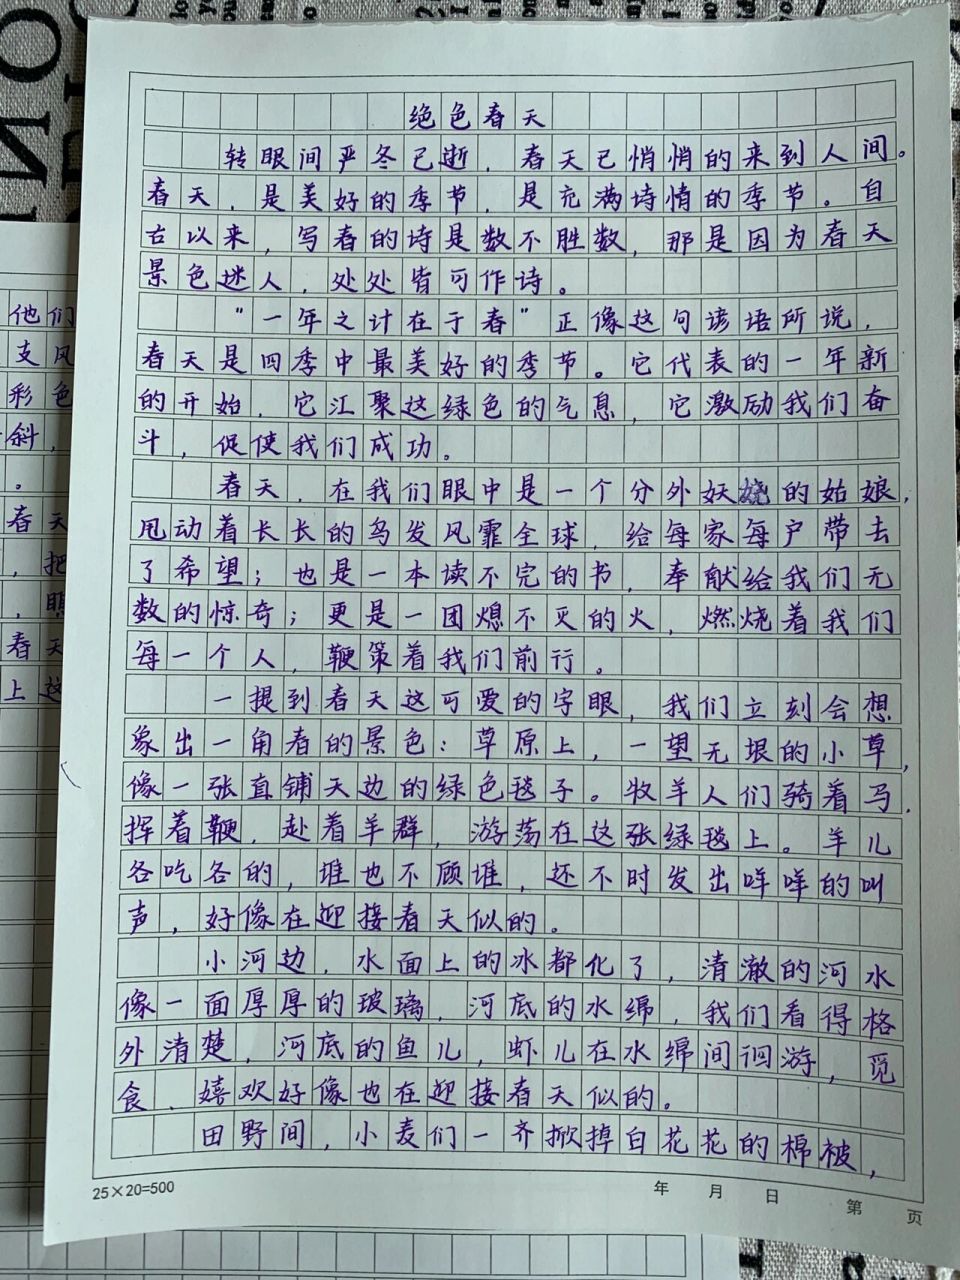 绝色春天
转眼间严冬已逝，春天已悄悄的来到人间。
春天，是美好的季节，是充满诗情的季节。自
古以来，写春的诗是数不胜数，那是因为春天
景色迷人，处处皆可作诗。
"一年之计在于春"正像这句谚语所说，
春天是四季中最美好的季节。它代表的一年新
的开始，它汇聚这绿色的气息，它激励我们奋
斗，促使我们成功。
春天，在我们眼中是一个分外妖娆的姑娘，
甩动着长长的鸟发风霏全球，给每家每户带去
了希望；也是一本读不完的书，奉献给我们无
数的惊奇；更是一团熄不灭的火，燃烧着我们
每一个人，鞭策着我们前行。
一提到春天这可爱的字眼，我们立刻会想
象出一角春的景色：草原上，一望无垠的小草，
像一张直铺天边的绿色毯子。牧羊人们骑着马，
挥着鞭，赴着羊群，游荡在这张绿毯上。羊儿
各吃各的，谁也不顾谁，还不时发出咩咩的叫
声，好像在迎接春天似的。
小河边，水面上的冰都化了，清澈的河水
像一面厚厚的玻璃，河底的水绵，我们看得格
外清楚，河底的鱼儿，虾儿在水绵间徊游，觅
食、嬉欢好像也在迎接春天似的。
田野间，小麦们一齐掀掉白花花的棉被，
25×20=500
年 月 日 第 页
他们
支风
彩色
斜，
。
春天
，把
上这